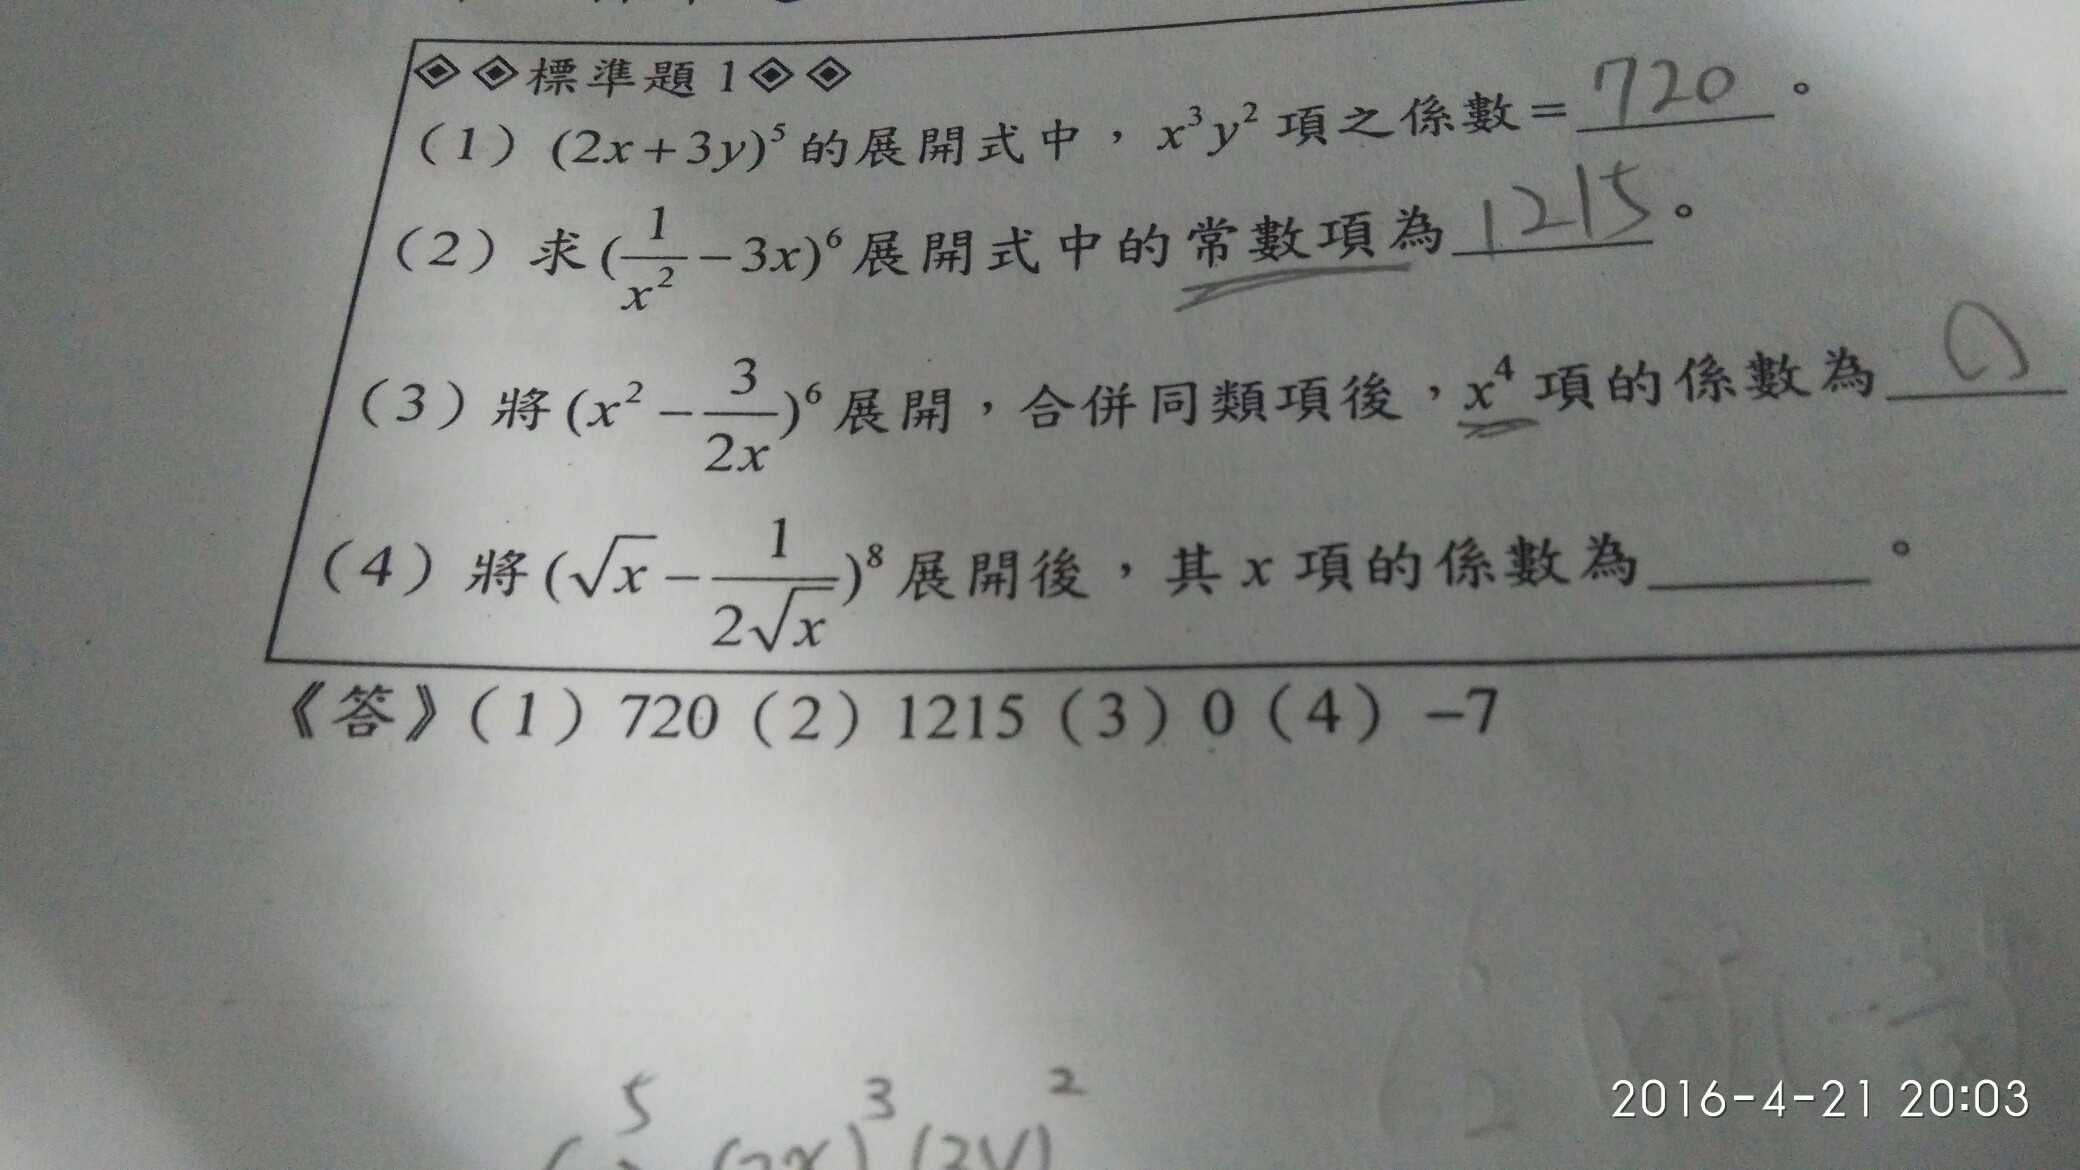 ◈◈標準題1◈◈
(1) (2x+3y)⁵的展開式中，x³y²項之係數=720。
(2) 求(1/x²−3x)⁶展開式中的常數項為1215。
(3) 將(x²−3/2x)⁶展開，合併同類項後，x⁴項的係數為0
(4) 將(√x−1/2√x)⁸展開後，其x項的係數為______。
《答》(1) 720 (2) 1215 (3) 0 (4) −7
5 3 2
(2x) (3y)
2016-4-21 20:03